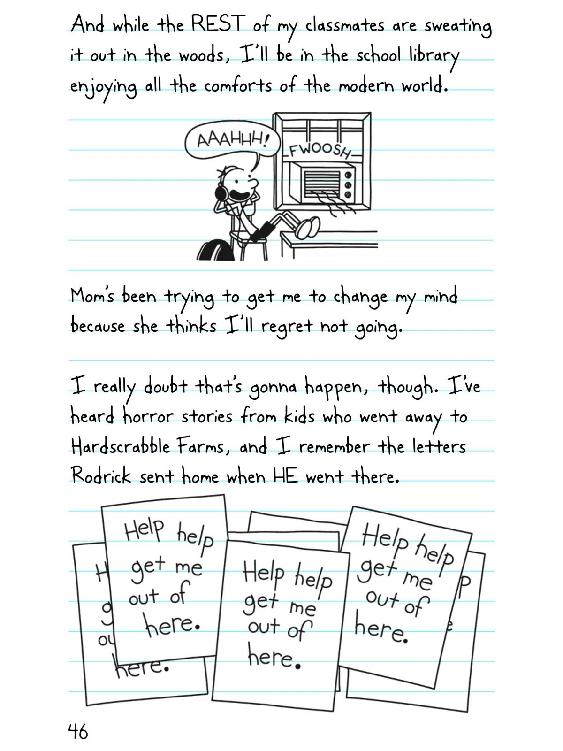 And while the REST of my classmates are sweating
it out in the woods, I'll be in the school library
enjoying all the comforts of the modern world.
AAAHHH!
FWOOSH
Mom's been trying to get me to change my mind
because she thinks I'll regret not going.
I really doubt that's gonna happen, though. I've
heard horror stories from kids who went away to
Hardscrabble Farms, and I remember the letters
Rodrick sent home when HE went there.
Help help
get me
out of
here.
Help help
get me
out of
here.
Help help
get me
out of
here.
here.
46